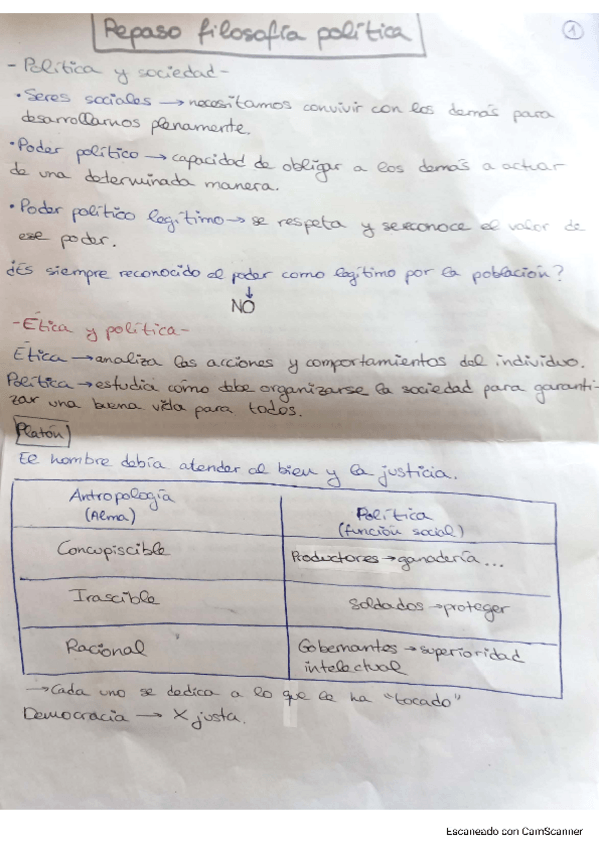 Repaso filosofía política
1
- Política y sociedad -
• Seres sociales → necesitamos convivir con los demás para
desarrollarnos plenamente.
• Poder político → capacidad de obligar a los demás a actuar
de una determinada manera.
• Poder político legítimo → se respeta y se reconoce el valor de
ese poder.
¿Es siempre reconocido el poder como legítimo por la población?
↓
NO
- Ética y política -
Ética → analiza las acciones y comportamientos del individuo.
Política → estudia cómo debe organizarse la sociedad para garanti-
zar una buena vida para todos.
Platón
El hombre debía atender al bien y la justicia.
Antropología
(Alma)
Política
(función social)
Concupiscible
Productores → ganadería...
Irascible
Soldados → proteger
Racional
Gobernantes → superioridad
intelectual
→ Cada uno se dedica a lo que le ha "tocado"
Democracia → X justa.
Escaneado con CamScanner